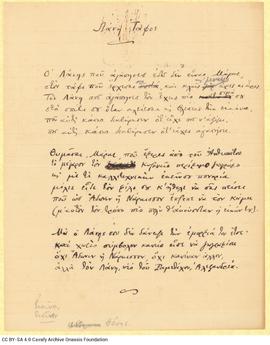 Λάνη Τάφος
Ο Λάνης που αγάπησες εδώ δεν είναι, Μάρκε,
στον τάφο που έρχεσαι και κλαις
Τον Λάνη που αγάπησες τον έχεις πιο κοντά σου
στο σπίτι σου όταν κλείεσαι και βλέπεις την εικόνα,
που αυτή κάπως διατήρησεν ό,τι είχε που ν' αξίζει,
που αυτή κάπως διατήρησεν ό,τι είχες αγαπήσει.
Θυμάσαι, Μάρκε, που έφερες από του Ανθυπάτου
το μέγαρον τον Κυρηναίο περίφημο ζωγράφο,
και με τι καλλιτεχνικήν εκείνος πανουργία
μόλις είδε τον φίλο σου κ' ήθελε να σας πείσει
που ως Άδωνιν ή Νάρκισσον έπρεπε να τον κάμει
(μ' αυτόν τον τρόπο πιο πολύ θ' ακούονταν η εικών του).
Μα ο Λάνης σου δεν δάνειζε την εμορφιά του έτσι·
και χωρίς σύμβολον κανένα είπε να
όχι Άδωνιν ή Νάρκισσον, όχι κανέναν άλλον,
αλλά τον Λάνη, υιό του Ραμετίχου, Αλεξανδρέα.
CC BY-SA 4.0 Cavafy Archive Onassis Foundation